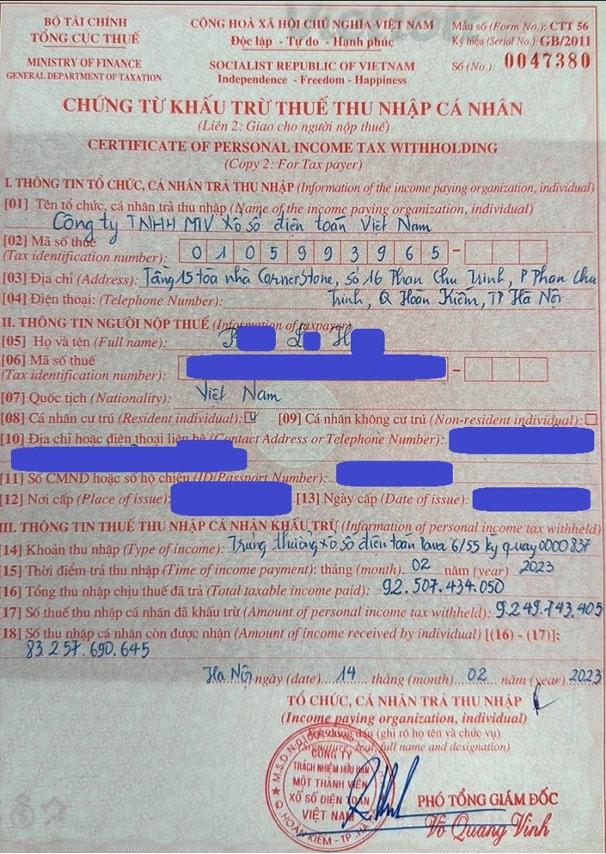 BỘ TÀI CHÍNH
TỔNG CỤC THUẾ
MINISTRY OF FINANCE
GENERAL DEPARTMENT OF TAXATION
CỘNG HOÀ XÃ HỘI CHỦ NGHĨA VIỆT NAM
Độc lập - Tự do - Hạnh phúc
SOCIALIST REPUBLIC OF VIETNAM
Independence - Freedom - Happiness
Mẫu số (Form No.): CTT 56
Ký hiệu (Serial No.): GB/2011
Số (No.): 0047380
CHỨNG TỪ KHẤU TRỪ THUẾ THU NHẬP CÁ NHÂN
(Liên 2: Giao cho người nộp thuế)
CERTIFICATE OF PERSONAL INCOME TAX WITHHOLDING
(Copy 2: For Tax payer)
I. THÔNG TIN TỔ CHỨC, CÁ NHÂN TRẢ THU NHẬP (Information of the income paying organization, individual)
[01] Tên tổ chức, cá nhân trả thu nhập (Name of the income paying organization, individual)
Công ty TNHH MTV Xổ số điện toán Việt Nam
[02] Mã số thuế
(Tax identification number): 0105993965
[03] Địa chỉ (Address): Tầng 15 tòa nhà CornerStone, số 16 Phan Chu Trinh, P Phan Chu
[04] Điện thoại: (Telephone Number): Trinh, Q Hoàn Kiếm, TP Hà Nội
II. THÔNG TIN NGƯỜI NỘP THUẾ (Information of taxpayer)
[05] Họ và tên (Full name):
[06] Mã số thuế
(Tax identification number):
[07] Quốc tịch (Nationality): Việt Nam
[08] Cá nhân cư trú (Resident individual): [09] Cá nhân không cư trú (Non-resident individual):
[10] Địa chỉ hoặc điện thoại liên hệ (Contact Address or Telephone Number):
[11] Số CMND hoặc số hộ chiếu (ID/Passport Number):
[12] Nơi cấp (Place of issue): [13] Ngày cấp (Date of issue):
III. THÔNG TIN THUẾ THU NHẬP CÁ NHÂN KHẤU TRỪ (Information of personal income tax withheld)
[14] Khoản thu nhập (Type of income): Trúng thưởng xổ số điện toán Power 6/55 kỳ quay 0000837
[15] Thời điểm trả thu nhập (Time of income payment): tháng (month). 02 năm (year) 2023
[16] Tổng thu nhập chịu thuế đã trả (Total taxable income paid): 92.507.434.050
[17] Số thuế thu nhập cá nhân đã khấu trừ (Amount of personal income tax withheld): 9.249.743.405
[18] Số thu nhập cá nhân còn được nhận (Amount of income received by individual) [(16) - (17)]:
83.257.690.645
Hà Nội ngày (date) 14 tháng (month) 02 năm (year) 2023
TỔ CHỨC, CÁ NHÂN TRẢ THU NHẬP
(Income paying organization, individual)
Ký, đóng dấu (ghi rõ họ tên và chức vụ)
Signature, seal, full name and designation)
CÔNG TY
TRÁCH NHIỆM HỮU HẠN
MỘT THÀNH VIÊN
XỔ SỐ ĐIỆN TOÁN
VIỆT NAM
Q. HOÀN KIẾM - TP. HÀ NỘI
PHÓ TỔNG GIÁM ĐỐC
Võ Quang Vinh